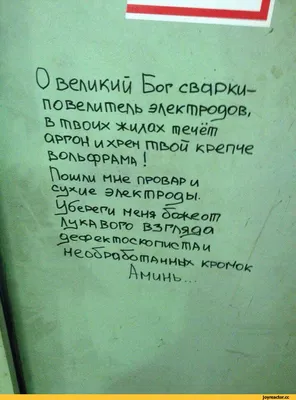 О великий Бог сварки-
повелитель электродов,
в твоих жилах течёт
аргон и хрен твой крепче
вольфрама !
Пошли мне провар и
сухие электроды.
Убереги меня боже от
лукавого взгляда
дефектоскописта и
необработанных кромок
Аминь...
joyreactor.cc